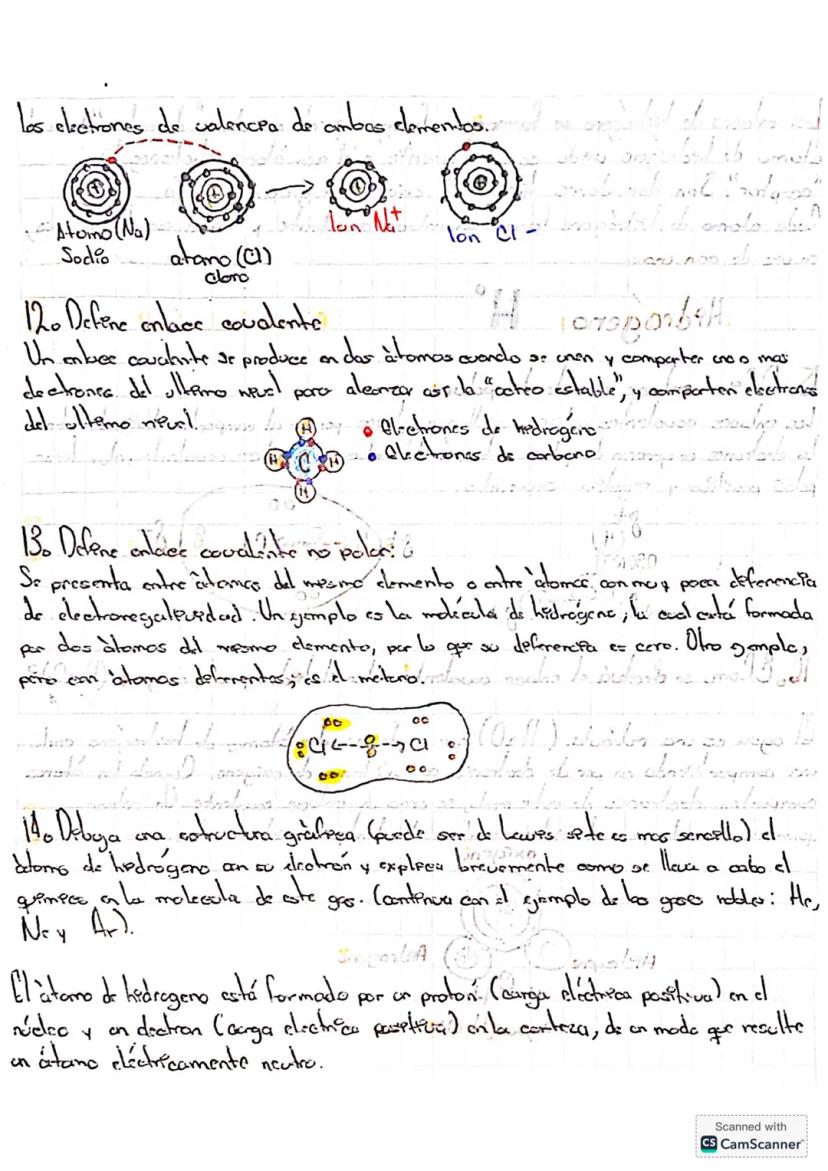 los electrones de valencia de ambos elementos.
Átomo (Na)
Sodio
átomo (Cl)
cloro
Ion Na+
Ion Cl -
12. Define enlace covalente
Un enlace covalente se produce en dos átomos cuando se unen y comparten uno o mas
electrones del ultimo nivel para alcanzar así la "octeo estable", y comparten electrones
del ultimo nivel.
H
H C H
H
• Electrones de hidrogéno
• Electrones de carbono
13. Define enlace covalente no polar:
Se presenta entre átomos del mismo elemento o entre átomos con muy poca diferencia
de electronegatividad. Un ejemplo es la molécula de hidrógeno, la cual está formada
por dos átomos del mismo elemento, por lo que su diferencia es cero. Otro ejemplo,
pero con átomos diferentes, es el metano.
Cl Cl
14. Dibuja una estructura gráfica (puede ser de Lewis si te es mas sencillo) el
átomo de hidrógeno con su electrón y explica brevemente como se lleva a cabo el
químico en la molecula de este gas. (continua con el ejemplo de los gases nobles: He,
Ne y Ar).
El átomo de hidrogeno está formado por un protón (carga eléctrica positiva) en el
núcleo y un electron (carga electrica positiva) en la corteza, de un modo que resulte
un átomo eléctricamente neutro.
Scanned with
CS CamScanner